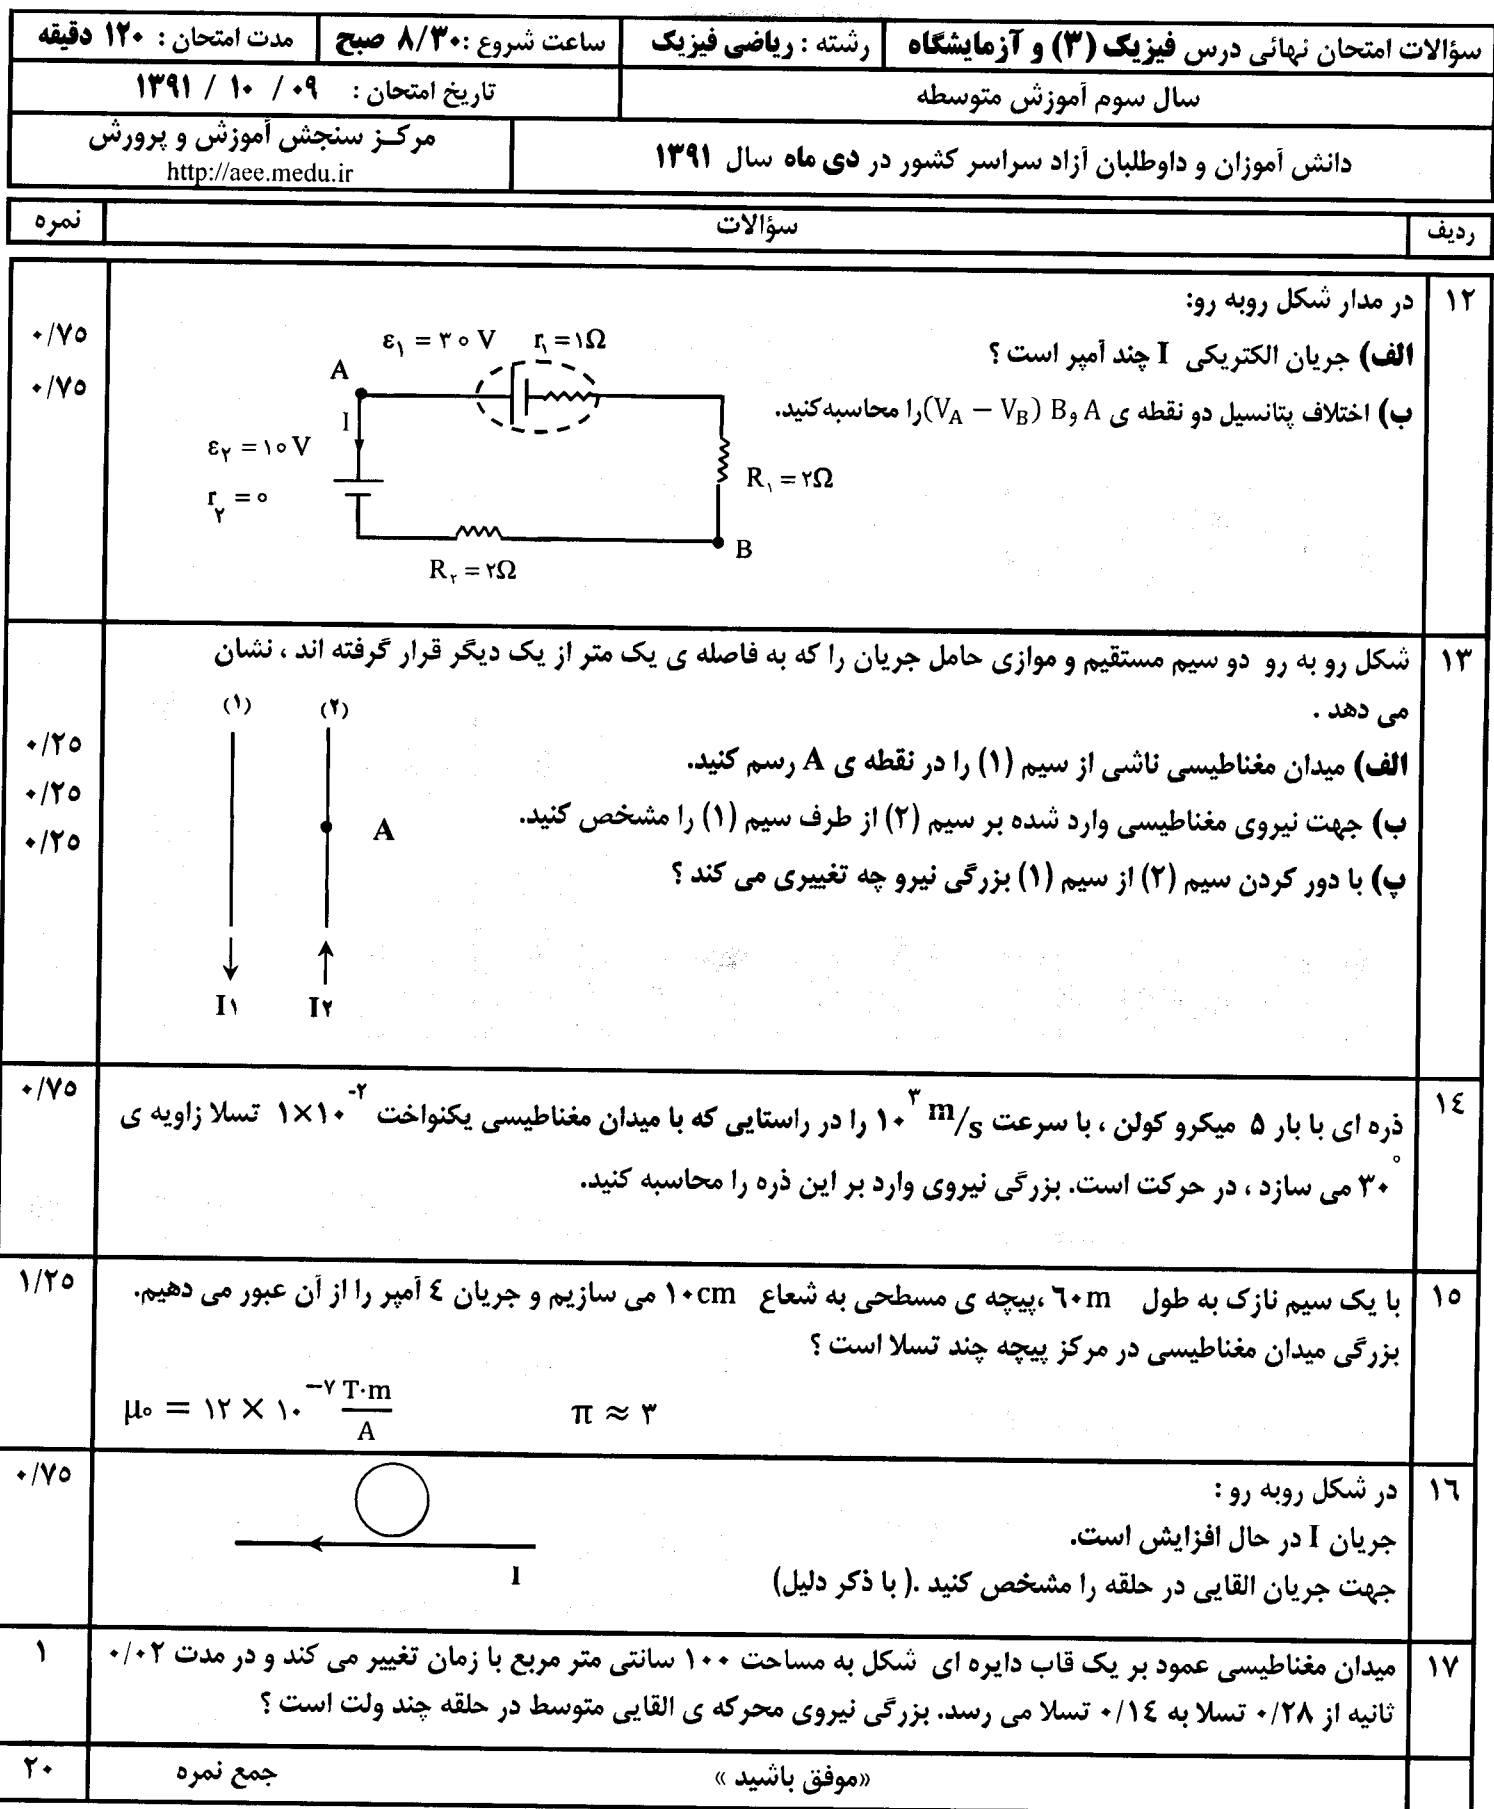 سؤالات امتحان نهائی درس فیزیک (۳) و آزمایشگاه رشته : ریاضی فیزیک ساعت شروع :۸/۳۰ صبح مدت امتحان : ۱۲۰ دقیقه
سال سوم آموزش متوسطه تاریخ امتحان : ۰۹ / ۱۰ / ۱۳۹۱
دانش آموزان و داوطلبان آزاد سراسر کشور در دی ماه سال ۱۳۹۱ مرکـز سنجش آموزش و پرورش
http://aee.medu.ir
ردیف سؤالات نمره
۱۲ در مدار شکل روبه رو:
الف) جریان الکتریکی I چند آمپر است ؟ ۰/۷۵
ب) اختلاف پتانسیل دو نقطه ی A و B (V_A − V_B) را محاسبه کنید. ۰/۷۵
ε₁ = ۳۰ V r₁ = ۱Ω
A
I
ε₂ = ۱۰ V
r₂ = ۰
R₁ = ۲Ω
B
R₂ = ۲Ω
۱۳ شکل رو به رو دو سیم مستقیم و موازی حامل جریان را که به فاصله ی یک متر از یک دیگر قرار گرفته اند ، نشان
می دهد .
الف) میدان مغناطیسی ناشی از سیم (۱) را در نقطه ی A رسم کنید. ۰/۲۵
ب) جهت نیروی مغناطیسی وارد شده بر سیم (۲) از طرف سیم (۱) را مشخص کنید. ۰/۲۵
پ) با دور کردن سیم (۲) از سیم (۱) بزرگی نیرو چه تغییری می کند ؟ ۰/۲۵
(۱) (۲)
A
I۱ I۲
۱۴ ذره ای با بار ۵ میکرو کولن ، با سرعت ۱۰^۳ m/s را در راستایی که با میدان مغناطیسی یکنواخت ۱×۱۰^-۲ تسلا زاویه ی ۰/۷۵
۳۰° می سازد ، در حرکت است. بزرگی نیروی وارد بر این ذره را محاسبه کنید.
۱۵ با یک سیم نازک به طول ۶۰m ،پیچه ی مسطحی به شعاع ۱۰cm می سازیم و جریان ۴ آمپر را از آن عبور می دهیم. ۱/۲۵
بزرگی میدان مغناطیسی در مرکز پیچه چند تسلا است ؟
μ₀ = ۱۲ × ۱۰^−۷ T·m/A π ≈ ۳
۱۶ در شکل روبه رو : ۰/۷۵
جریان I در حال افزایش است.
جهت جریان القایی در حلقه را مشخص کنید .( با ذکر دلیل)
I
۱۷ میدان مغناطیسی عمود بر یک قاب دایره ای شکل به مساحت ۱۰۰ سانتی متر مربع با زمان تغییر می کند و در مدت ۰/۰۲ ۱
ثانیه از ۰/۲۸ تسلا به ۰/۱۴ تسلا می رسد. بزرگی نیروی محرکه ی القایی متوسط در حلقه چند ولت است ؟
«موفق باشید » جمع نمره ۲۰